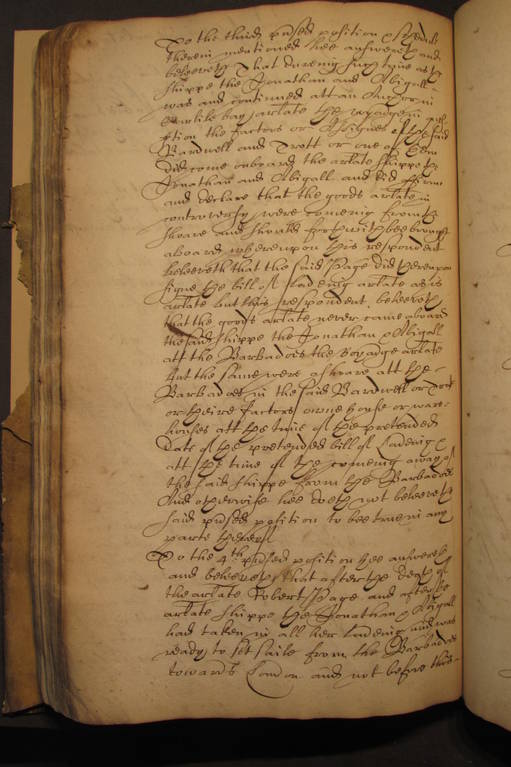 To the third pnsed position & schedule
therein mentioned hee answereth and
beleeveth That dureing such tyme as ye
shippe the Jonathan and Abigall
was and continued att an Anchor in
Carlile bay arlate the voyadge in question
the factors or Assignes of the said
Bardwell and Trott or one of them
did come onboard the arlate shippe the
Jonathan and Abigall and did
and declare that the goods arlate in
controversy were comeing from ye
shoare and should forthwith bee brought
aboard whereupon this respondent
beleeveth that the said Page did thereupon
signe the bill of Ladeing arlate as is
arlate but this respondent beleeveth
that the goods arlate never came aboard
the said shippe the Jonathan & Abigall
att the Barbadoes the voyadge arlate
but the same were a shoare att the
Barbadoes in the said Bardwell or Trott
or theire factors owne house or ware
houses att the time of the pretended
date of the pretended bill of Ladeing &
att the time of the comeing away of
the said shippe from the Barbadoes
And otherwise hee doth not beleeve ye
said pnsed position to bee true in any
parte thereof
To the 4th pnsed position hee answereth
and beleeveth that after the death of
the arlate Robert Page and after the
arlate shippe the Jonathan & Abigall
had taken in all her Ladeing and was
ready to set saile from the Barbadoes
towards London and not before this